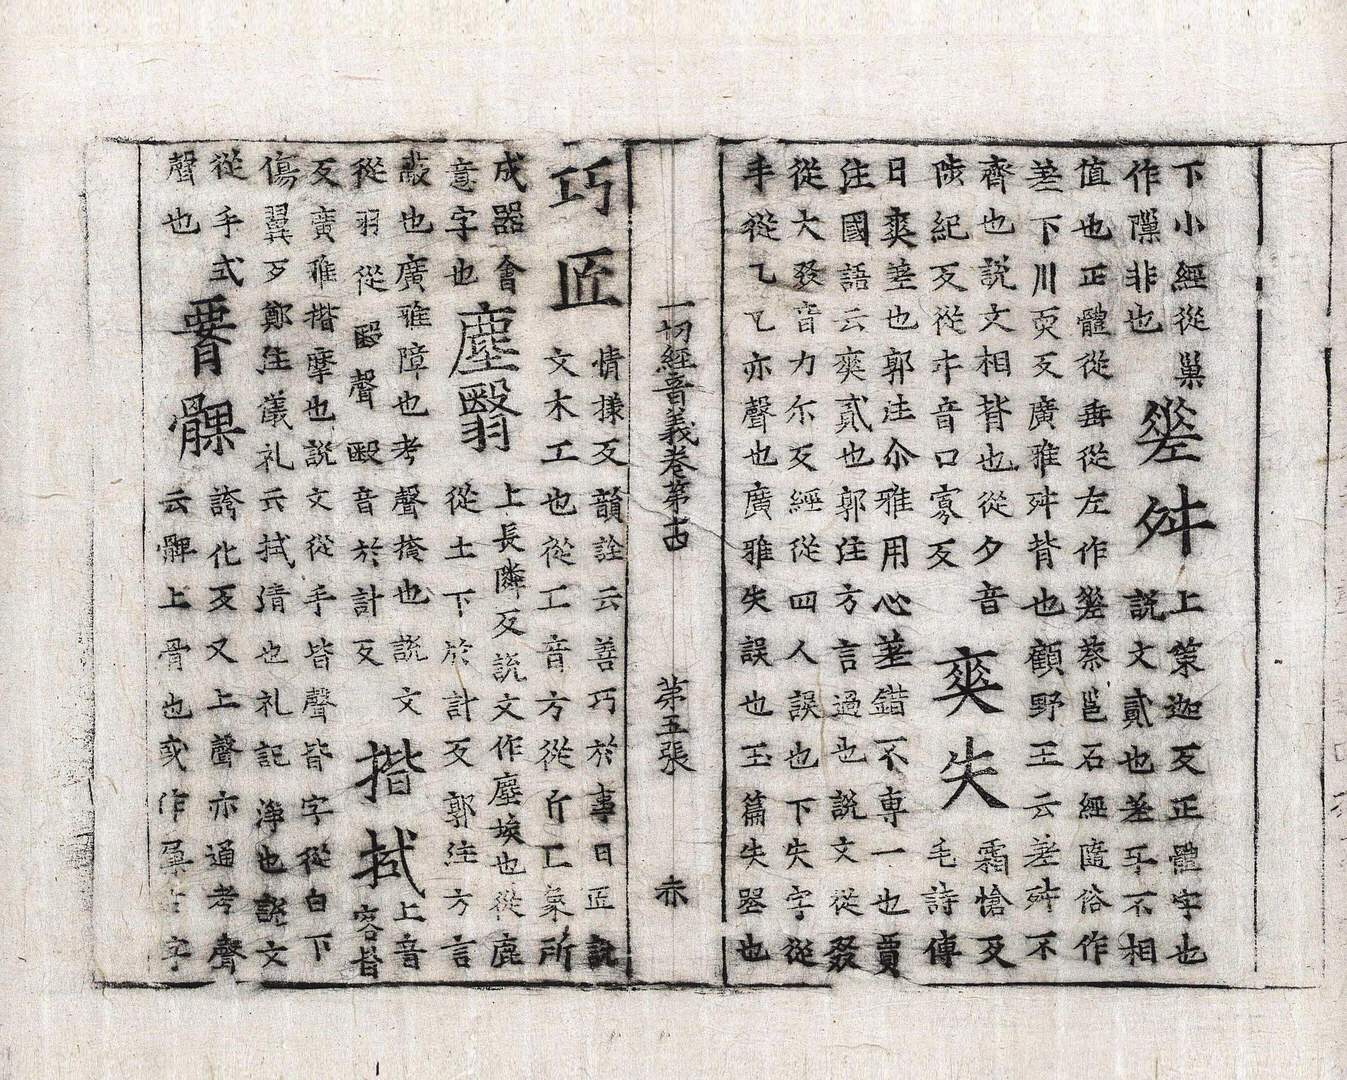 下小經從巢
作隟非也
差舛
上策迦反正體字也
說文貳也差不相
值也正體從𠂹從左作𢀩蔡邕石經隨俗作
差下川耎反廣雅舛背也顧野王云差舛不
齊也說文相背也從夕音
陟紀反從㐄音口寡反
爽失
霜愴反
毛詩傳
日爽差也郭注尒雅用心差錯不専一也賈
注國語云爽貳也郭注方言過也說文從㸚
從大㸚音力尒反經從四人誤也下失字從
手從乙乙亦聲也廣雅失誤也玉篇失器也
一切經音義卷第古
第五張
赤
巧匠
情樣反韻詮云善巧於事日匠說
文木工也從工音方從斤匚象所
成器會
意字也
塵翳
上長隣反說文作塵埃也從鹿
從土下於計反郭注方言
蔽也廣雅障也考聲掩也說文
從羽從殹聲殹音於計反
揩拭
上音
客皆
反廣雅揩摩也說文從手皆聲皆字從白下
傷翼反鄭注儀礼云拭清也礼記淨也說文
從手式
聲也
䯊髁
誇化反又上聲亦通考聲
云髀上骨也或作字